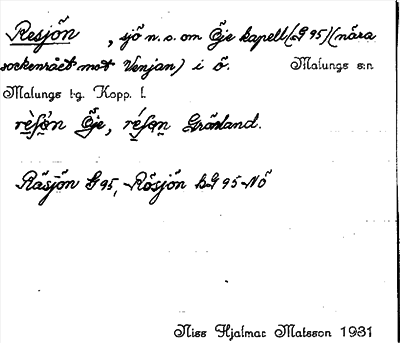 Resjön, sjö n.s. om Öje kapell (G 95) (nära
sockenrået mot Venjan) i ö. Malungs s:n
Malungs t-g. Kopp. l.
Öje, Gräsland.
Räsjön G 95, Rösjön G 95 NÖ
Niss Hjalmar Matsson 1931